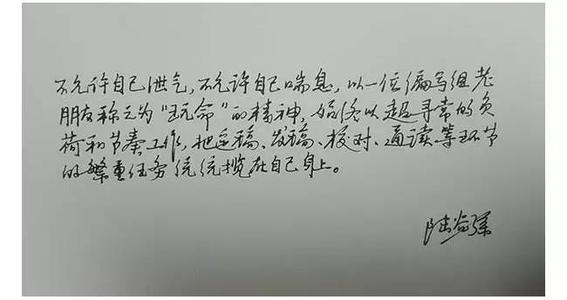 不允许自己泄气，不允许自己喘息，以一位编写组老
朋友称之为“玩命”的精神，始终以超寻常的负
荷和节奏工作，把定稿、发稿、校对、通读等环节
的繁重任务统统揽在自己身上。
陆谷孙